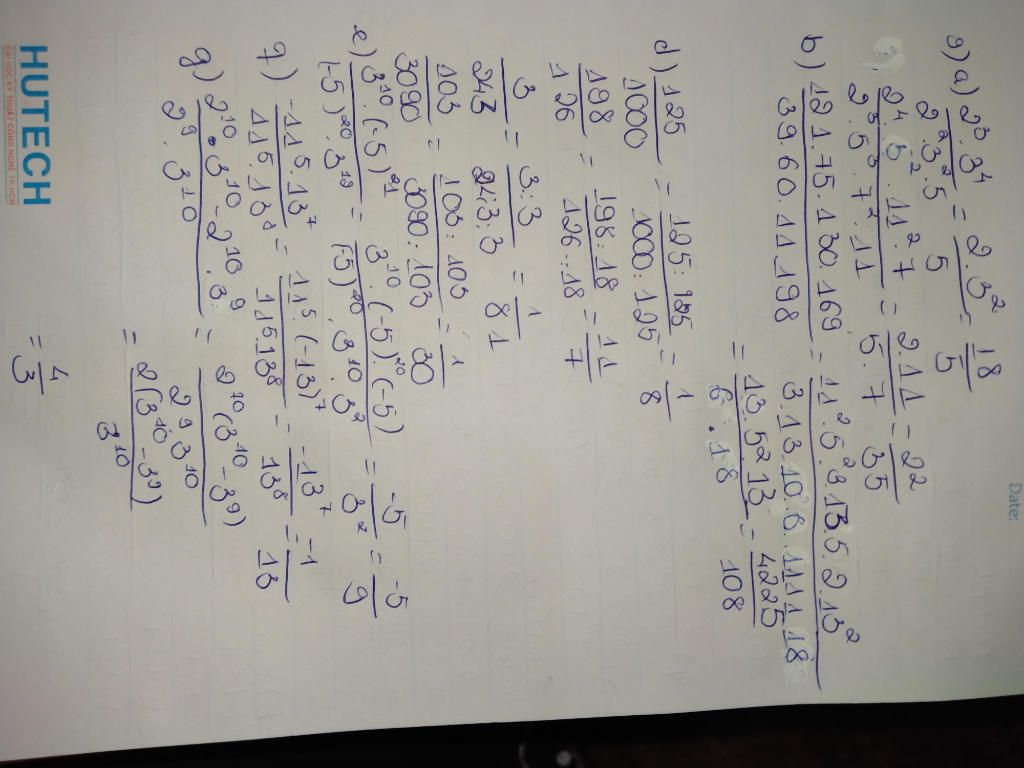 Date:
9) a) 2³.3⁴ / 2².3².5 = 2.3² / 5 = 18 / 5
2⁴.5².11².7 / 2³.5³.7².11 = 2.11 / 5.7 = 22 / 35
b) 121.75.130.169 / 39.60.11.198 = 11².5².3.13.5.2.13² / 3.13.10.6.11.11.18
= 13.5².13 / 6.18 = 4225 / 108
d) 125 / 1000 = 125:125 / 1000:125 = 1 / 8
198 / 126 = 198:18 / 126:18 = 11 / 7
3 / 243 = 3:3 / 243:3 = 1 / 81
103 / 3090 = 103:103 / 3090:103 = 1 / 30
e) 3¹⁰.(-5)²¹ / (-5)²⁰.3¹² = 3¹⁰.(-5)²⁰.(-5) / (-5)²⁰.3¹⁰.3² = -5 / 3² = -5 / 9
f) -11⁵.13⁷ / 11⁵.13⁸ = 11⁵(-13)⁷ / 11⁵.13⁸ = -13⁷ / 13⁸ = -1 / 13
g) 2¹⁰.3¹⁰-2¹⁰.3⁹ / 2⁹.3¹⁰ = 2¹⁰(3¹⁰-3⁹) / 2⁹3¹⁰
= 2(3¹⁰-3⁹) / 3¹⁰
= 4 / 3
HUTECH
ĐẠI HỌC KỸ THUẬT CÔNG NGHỆ TP.HCM